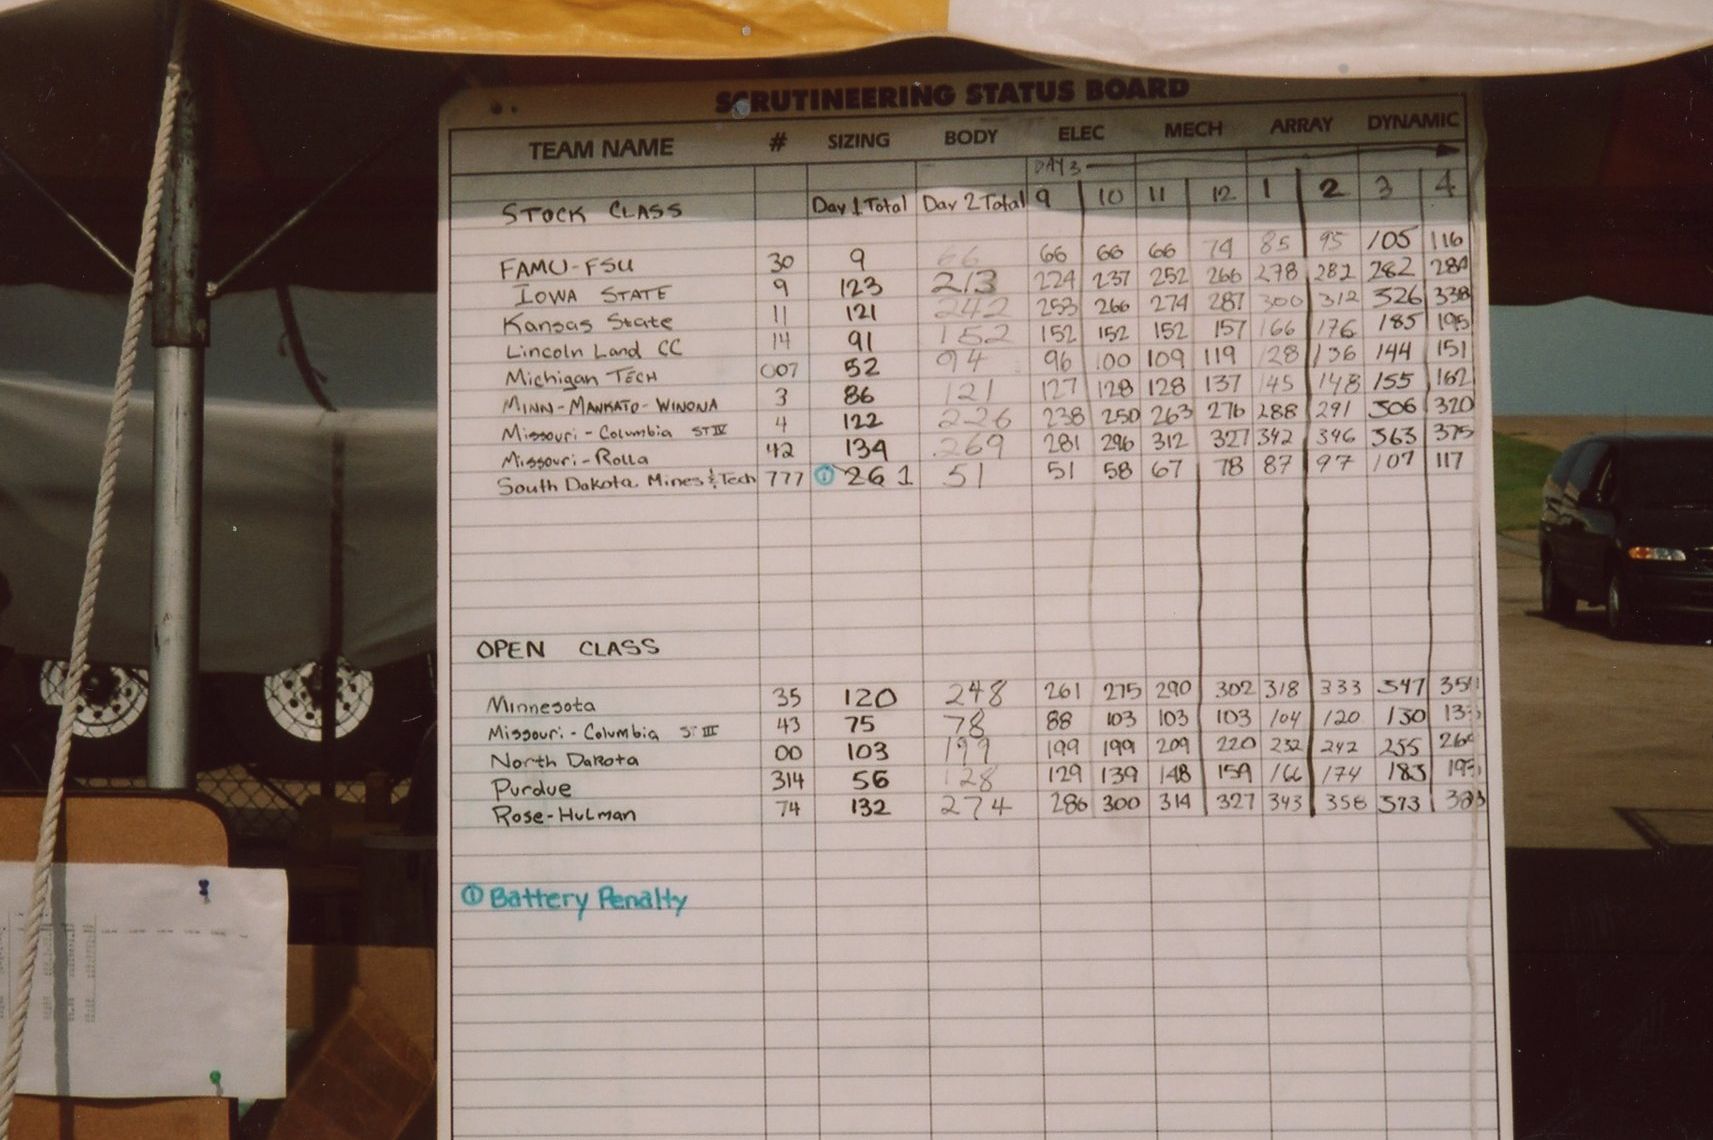 SCRUTINEERING STATUS BOARD
TEAM NAME # SIZING BODY ELEC MECH ARRAY DYNAMIC
DAY 3
STOCK CLASS Day 1 Total Day 2 Total 9 10 11 12 1 2 3 4
FAMU-FSU 30 9 66 66 66 66 74 85 95 105 116
IOWA STATE 9 123 213 224 237 252 266 278 282 282
Kansas State 11 121 242 253 266 274 287 300 312 326 338
Lincoln Land CC 14 91 152 152 152 152 157 166 176 185 195
Michigan TECH 007 52 94 96 100 109 119 128 136 144 151
MINN-MANKATO-WINONA 3 86 121 127 128 128 137 145 148 155 162
Missouri-Columbia ST IV 4 122 226 238 250 263 276 288 291 306 320
Missouri-Rolla 42 134 269 281 296 312 327 342 346 363 375
South Dakota Mines & Tech 777 ① 26 1 51 51 58 67 78 87 97 107 117
OPEN CLASS
Minnesota 35 120 248 261 275 290 302 318 333 347
Missouri-Columbia ST III 43 75 78 88 103 103 103 104 120 130
North Dakota 00 103 199 199 199 209 220 232 242 255
Purdue 314 56 128 129 139 148 159 166 174 183 193
Rose-Hulman 74 132 274 286 300 314 327 343 358 373
① Battery Penalty